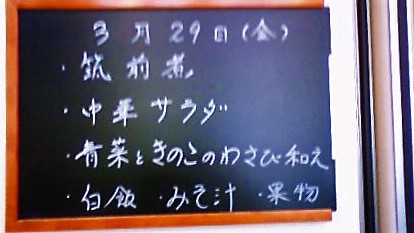 3月29日(金)
・筑前煮
・中華サラダ
・青菜ときのこのわさび和え
・白飯 ・みそ汁 ・果物